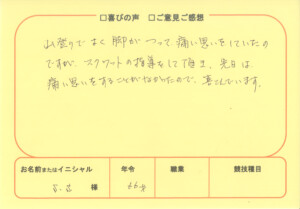 □喜びの声 □ご意見ご感想
山登りでよく脚がつって、痛い思いをしていたの
ですが、スクワットの指導をして頂き、先日は
痛い思いをすることがなかったので、喜んでいます。
お名前またはイニシャル
様
年令
66才
職業
競技種目